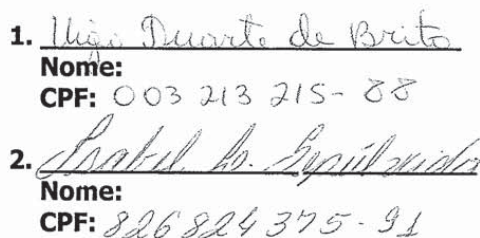 1. Duarte de Brito
Nome:
CPF: 003 213 215-88
2. Isabel
Nome:
CPF: 826824375-91